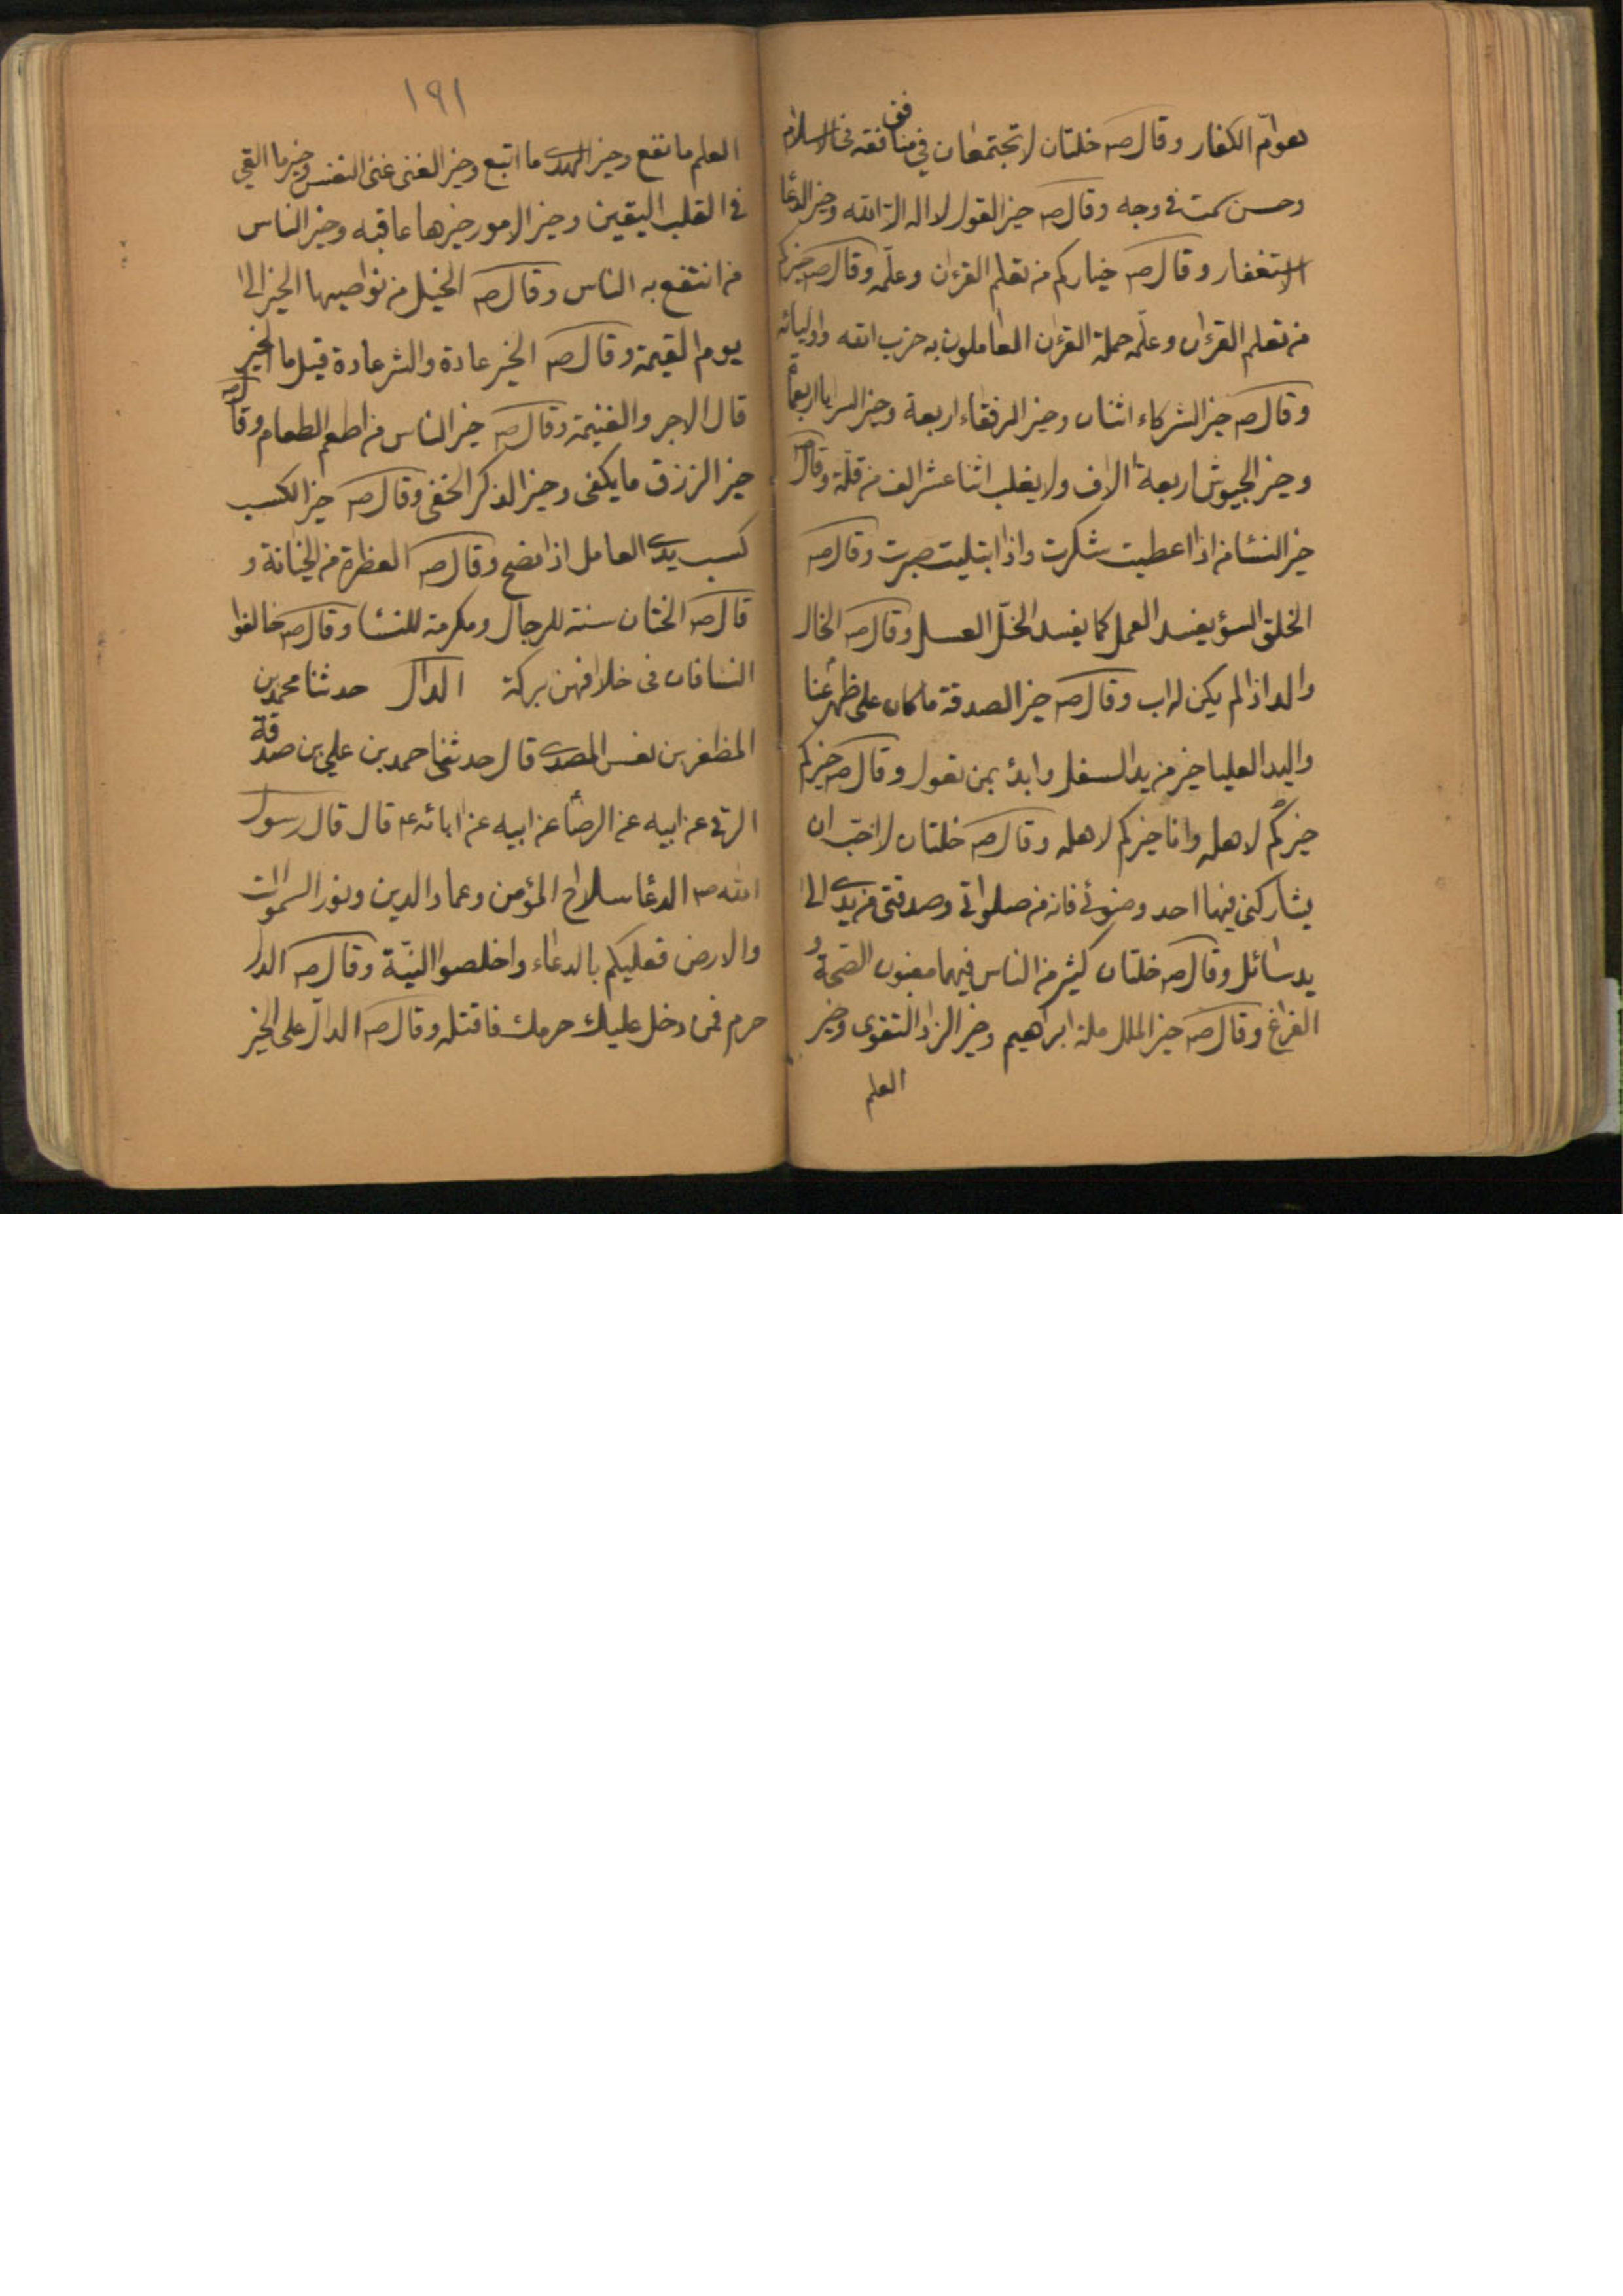 بعوامّ الكفار وقال ص خلتان لا تجتمعان في منافق فقه في الاسلام
وحسن سمت فى وجه وقال ص خير القول لا اله الا الله وخير الدعا
الاستغفار وقال ص خياركم من تعلم القرءان وعلّمه وقال ص خيركم
من تعلم القرءان وعلّمه حملة القرءان العاملون به حزب الله واوليائه
وقال ص خير الشركاء اثنان وخير الرفقاء اربعة وخير السرايا اربعمائة
وخير الجيوش اربعة الاف ولا يغلب اثنا عشر الف من قلّة وقال ص
خير النسا من اذا اعطيت شكرت واذا ابتليت صبرت وقال ص
الخلق السؤ يفسد العمل كما يفسد الخلّ العسل وقال ص الخال
والد اذا لم يكن له اب وقال ص خير الصدقة ما كان على ظهر غنا
واليد العليا خير من يد السفلى وابدئ بمن تعول وقال ص خيركم
خيركم لاهله وانا خيركم لاهله وقال ص خلتان لا احبّ ان
يشاركنى فيهما احد وضوئى فانه من صلواتي وصدقتى من يدى الى
يد سائل وقال ص خلتان كثير من الناس فيهما مغبون الصّحة و
الفراغ وقال ص خير الملل ملة ابراهيم وخير الزاد التقوى وخير
العلم
١٩١
العلم ما نفع وخير الهدى ما اتبع وخير الغنى غنى النفس وخير ما القي
فى القلب اليقين وخير الامور خيرها عاقبه وخير الناس
من انتفع به الناس وقال ص الخيل من نواصيها الخير الى
يوم القيمة وقال ص الخير عادة والشر عادة قيل ما الخير
قال الاجر والغنيمة وقال ص خير الناس من اطعم الطعام وقال ص
خير الرزق ما يكفى وخير الذكر الخفى وقال ص خير الكسب
كسب يدى العامل اذا نصح وقال ص من الخيانة و
قال ص الختان سنة للرجال ومكرمة للنسا وقال ص خالفوا
النسا فان فى خلافهن بركة الدال حدثنا محمد بن
المظفر بن نفيس المصرى قال حدثنى احمد بن علي بن صدقة
الرقى عن ابيه عن الرضا عن ابيه عن ابائه ع قال قال رسول
الله ص الدعا سلاح المؤمن وعماد الدين ونور السموات
والارض فعليكم بالدعاء واخلصوا النيّة وقال ص الدار
حرم فمن دخل عليك حرمك فاقتله وقال ص الدالّ على الخير